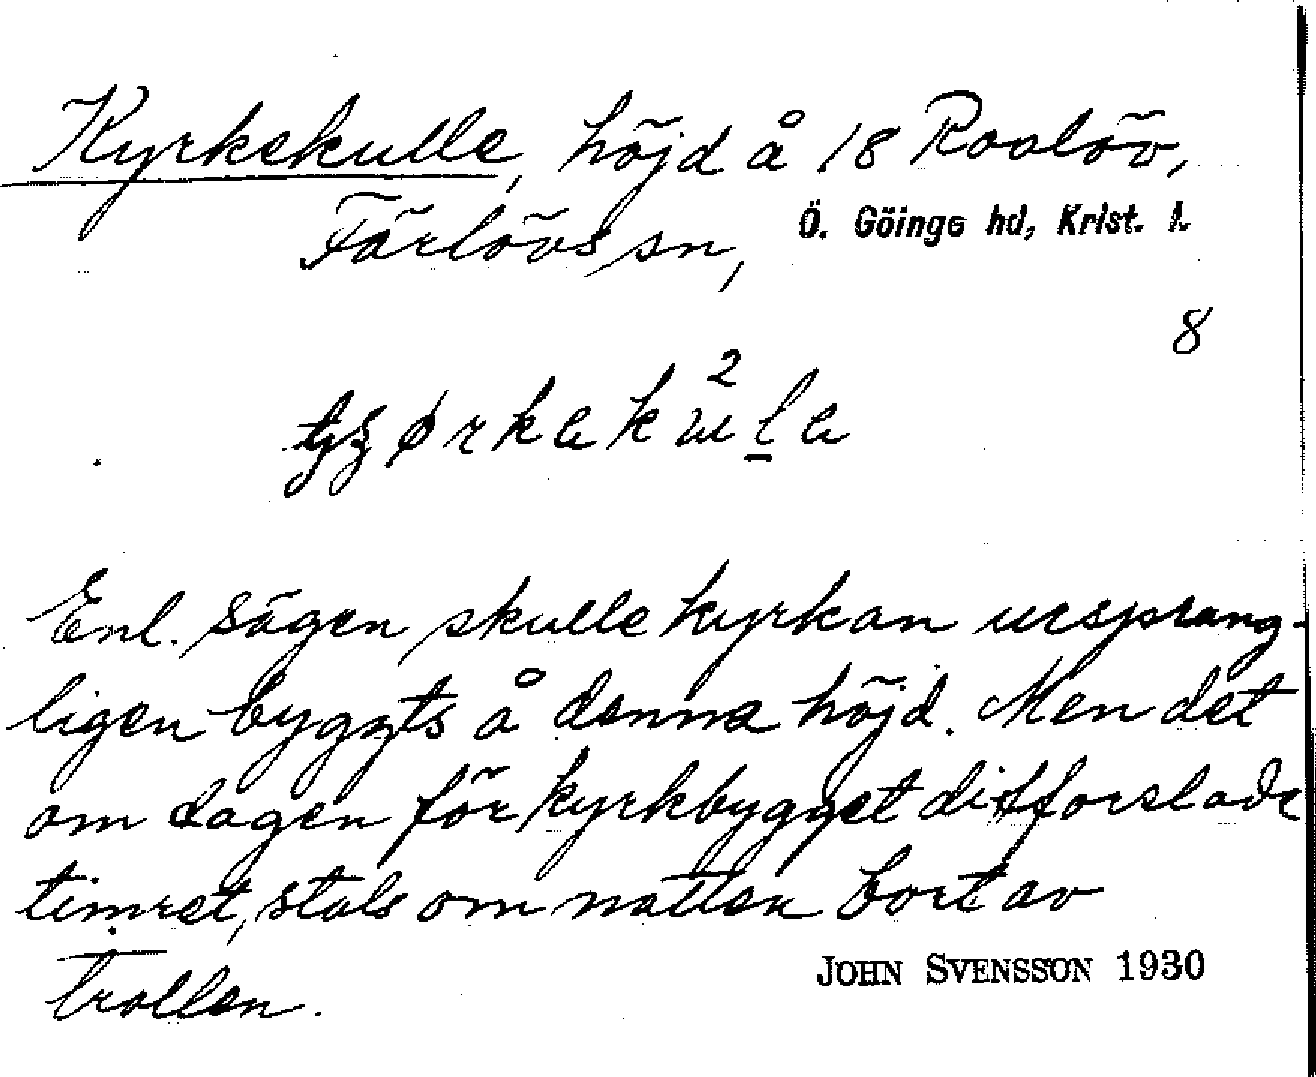 Kyrkekulle, höjd å 18 Roalöv,
Färlövs sn, Ö. Göinge hd, Krist. l.
8
Enl. sägen skulle kyrkan ursprung-
ligen byggts å denna höjd. Men det
om dagen för kyrkbygget ditforslade
timret, stals om natten bort av
trollen.
JOHN SVENSSON 1930